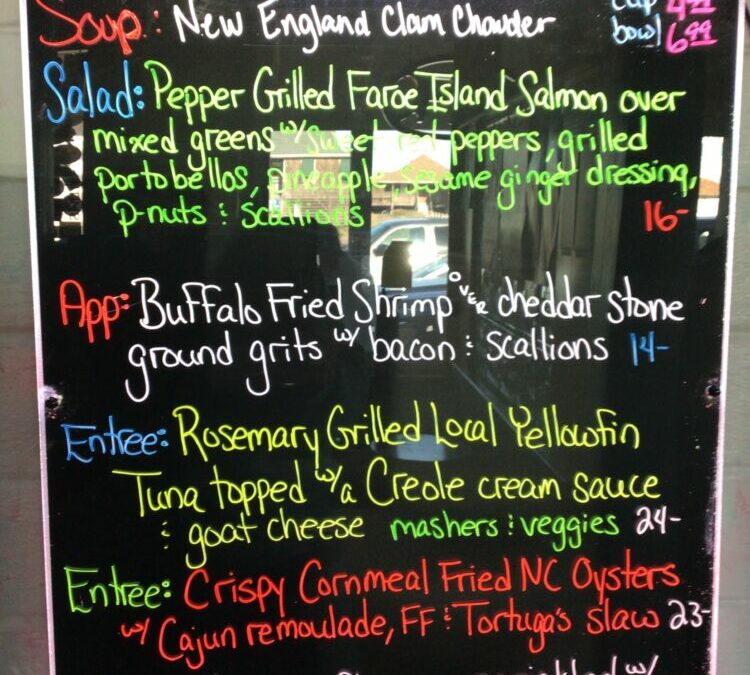 Soup: New England Clam Chowder cup 4.99
bowl 6.99
Salad: Pepper Grilled Faroe Island Salmon over
mixed greens w/ sweet red peppers, grilled
portobellos, pineapple, sesame ginger dressing,
p-nuts & scallions 16-
App: Buffalo Fried Shrimp OVER cheddar stone
ground grits w/ bacon & scallions 14-
Entree: Rosemary Grilled Local Yellowfin
Tuna topped w/ a Creole cream sauce
& goat cheese mashers & veggies 24-
Entree: Crispy Cornmeal Fried NC Oysters
w/ Cajun remoulade, FF & Tortuga's slaw 23-
w/